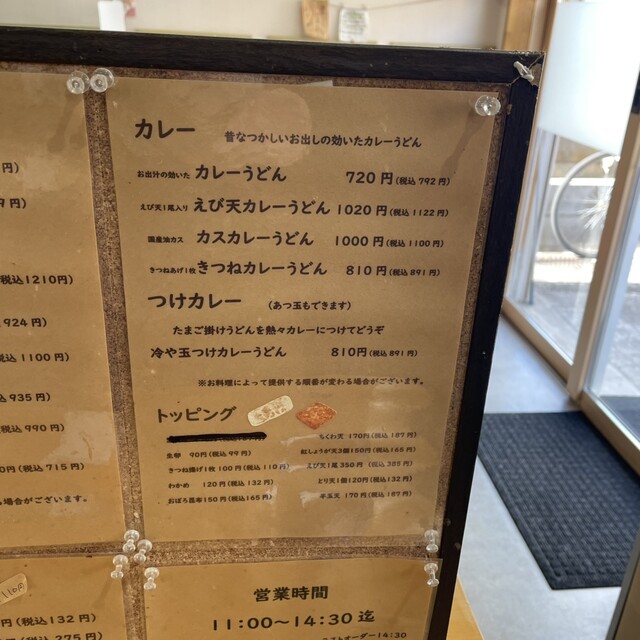 円)
9円)
税込1210円)
924円)
税込1100円)
込935円)
税込990円)
0円(税込715円)
がございます。
カレー 昔なつかしいお出しの効いたカレーうどん
お出汁の効いた カレーうどん 720円(税込 792円)
えび天1尾入り えび天カレーうどん 1020円(税込 1122円)
国産油カス カスカレーうどん 1000円(税込 1100円)
きつねあげ1枚 きつねカレーうどん 810円(税込 891円)
つけカレー (あつ玉もできます)
たまご掛けうどんを熱々カレーにつけてどうぞ
冷や玉つけカレーうどん 810円(税込 891円)
※お料理によって提供する順番が変わる場合がございます。
トッピング
ちくわ天 170円(税込187円)
生卵 90円(税込 99円) 紅しょうが天3個150円(税込165円)
きつね揚げ1枚100円(税込110円) えび天1尾350円(税込385円)
わかめ 120円(税込132円) とり天1個120円(税込132円)
おぼろ昆布150円(税込165円) 半玉天 170円(税込187円)
110円
円(税込132円)
円(税込275円)
営業時間
11:00〜14:30迄
ラストオーダー14:30